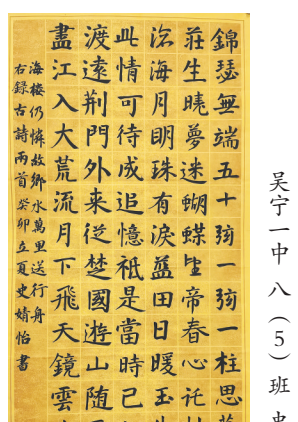 錦瑟無端五十弦一弦一柱思
莊生曉夢迷蝴蝶望帝春心託
滄海月明珠有淚藍田日暖玉
此情可待成追憶祇是當時已
渡遠荆門外来從楚國遊山随
盡江入大荒流月下飛天鏡雲
海樓仍憐故鄉水萬里送行舟
右録古詩兩首癸卯立夏史婧怡書
吴宁一中八（5）班